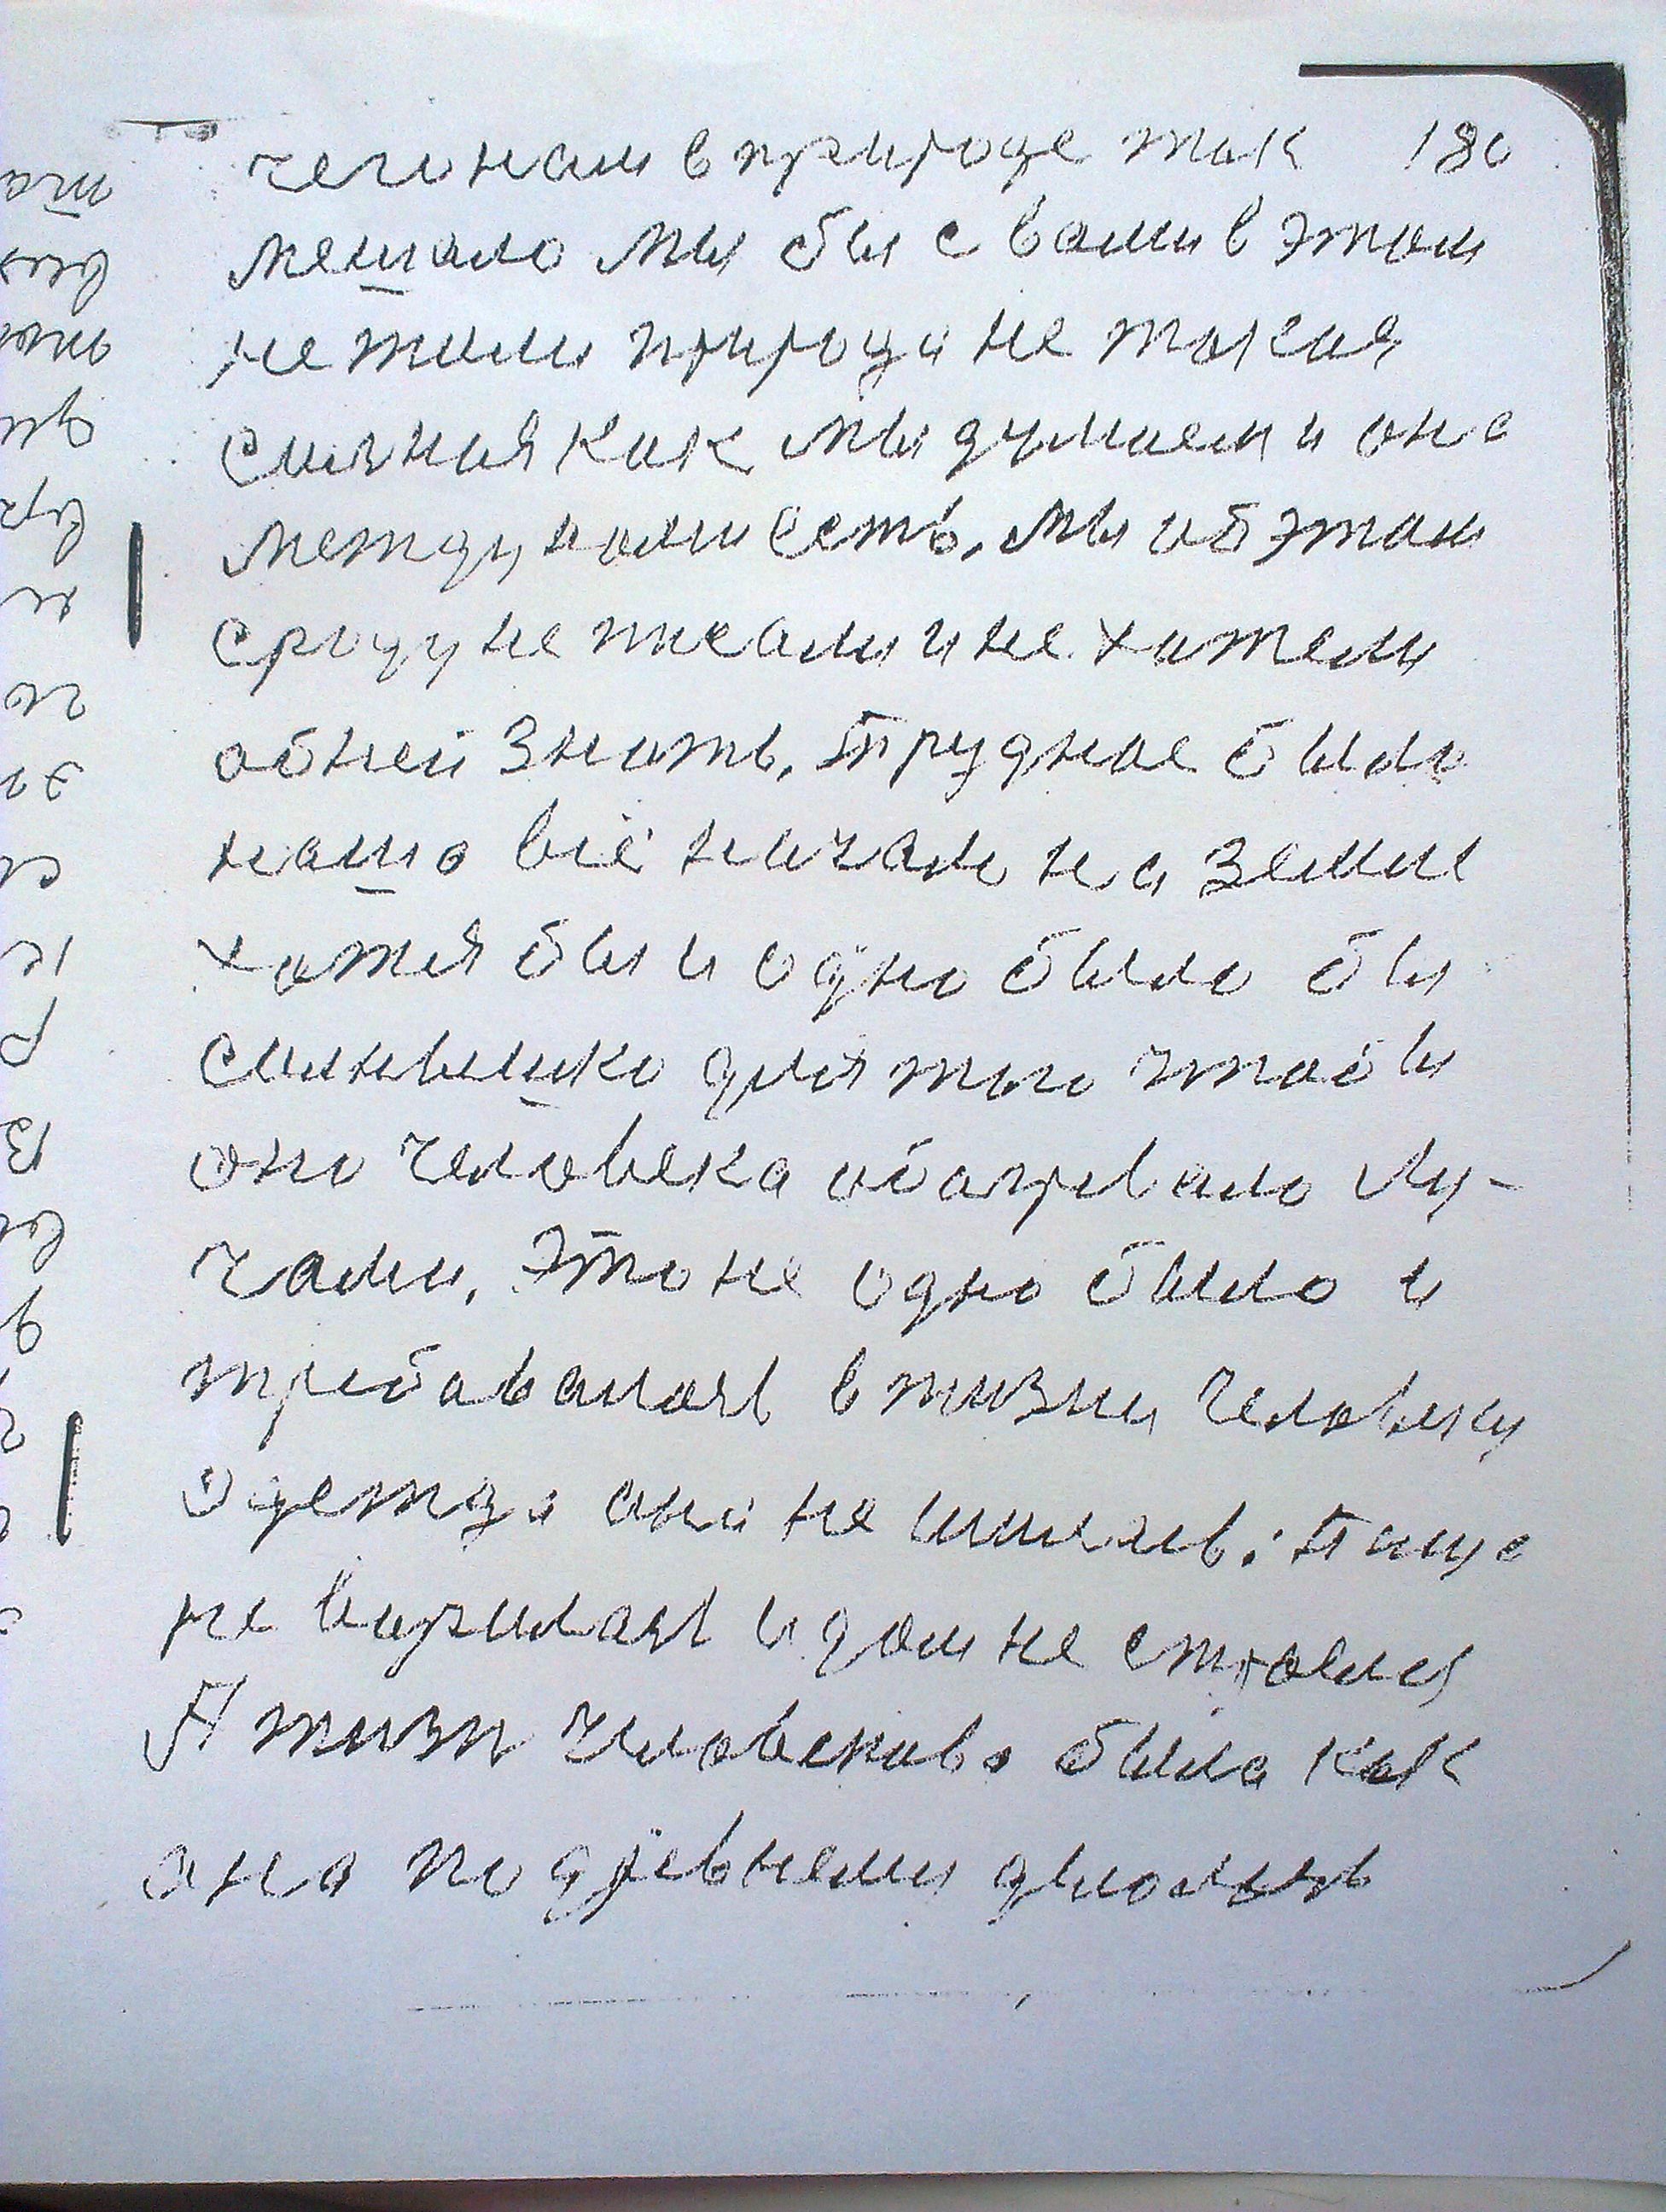 чего нам в природе так 180
мешало мы бы с вами в этом
не тили природа не такая
сильная как мы думаем и она
между нами есть, мы об этом
сроду не писали и не хотели
об ней знать, трудное было
нашо всё начало на земле
хотя бы и одно было бы
силнышко для того чтобы
оно человека обогревало лу-
чами, Это не одно было и
требавалось в жизни человеку
одежда она не шилась, пища
не варилась и дом не строелся
А жизн человекова была как
она по древнему